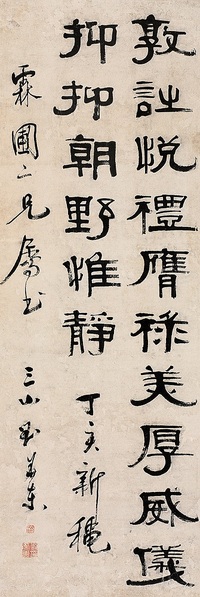 敦詩悅禮膺祿美厚威儀
抑抑朝野惟靜
丁亥新穐
霖圃二兄屬書
三山